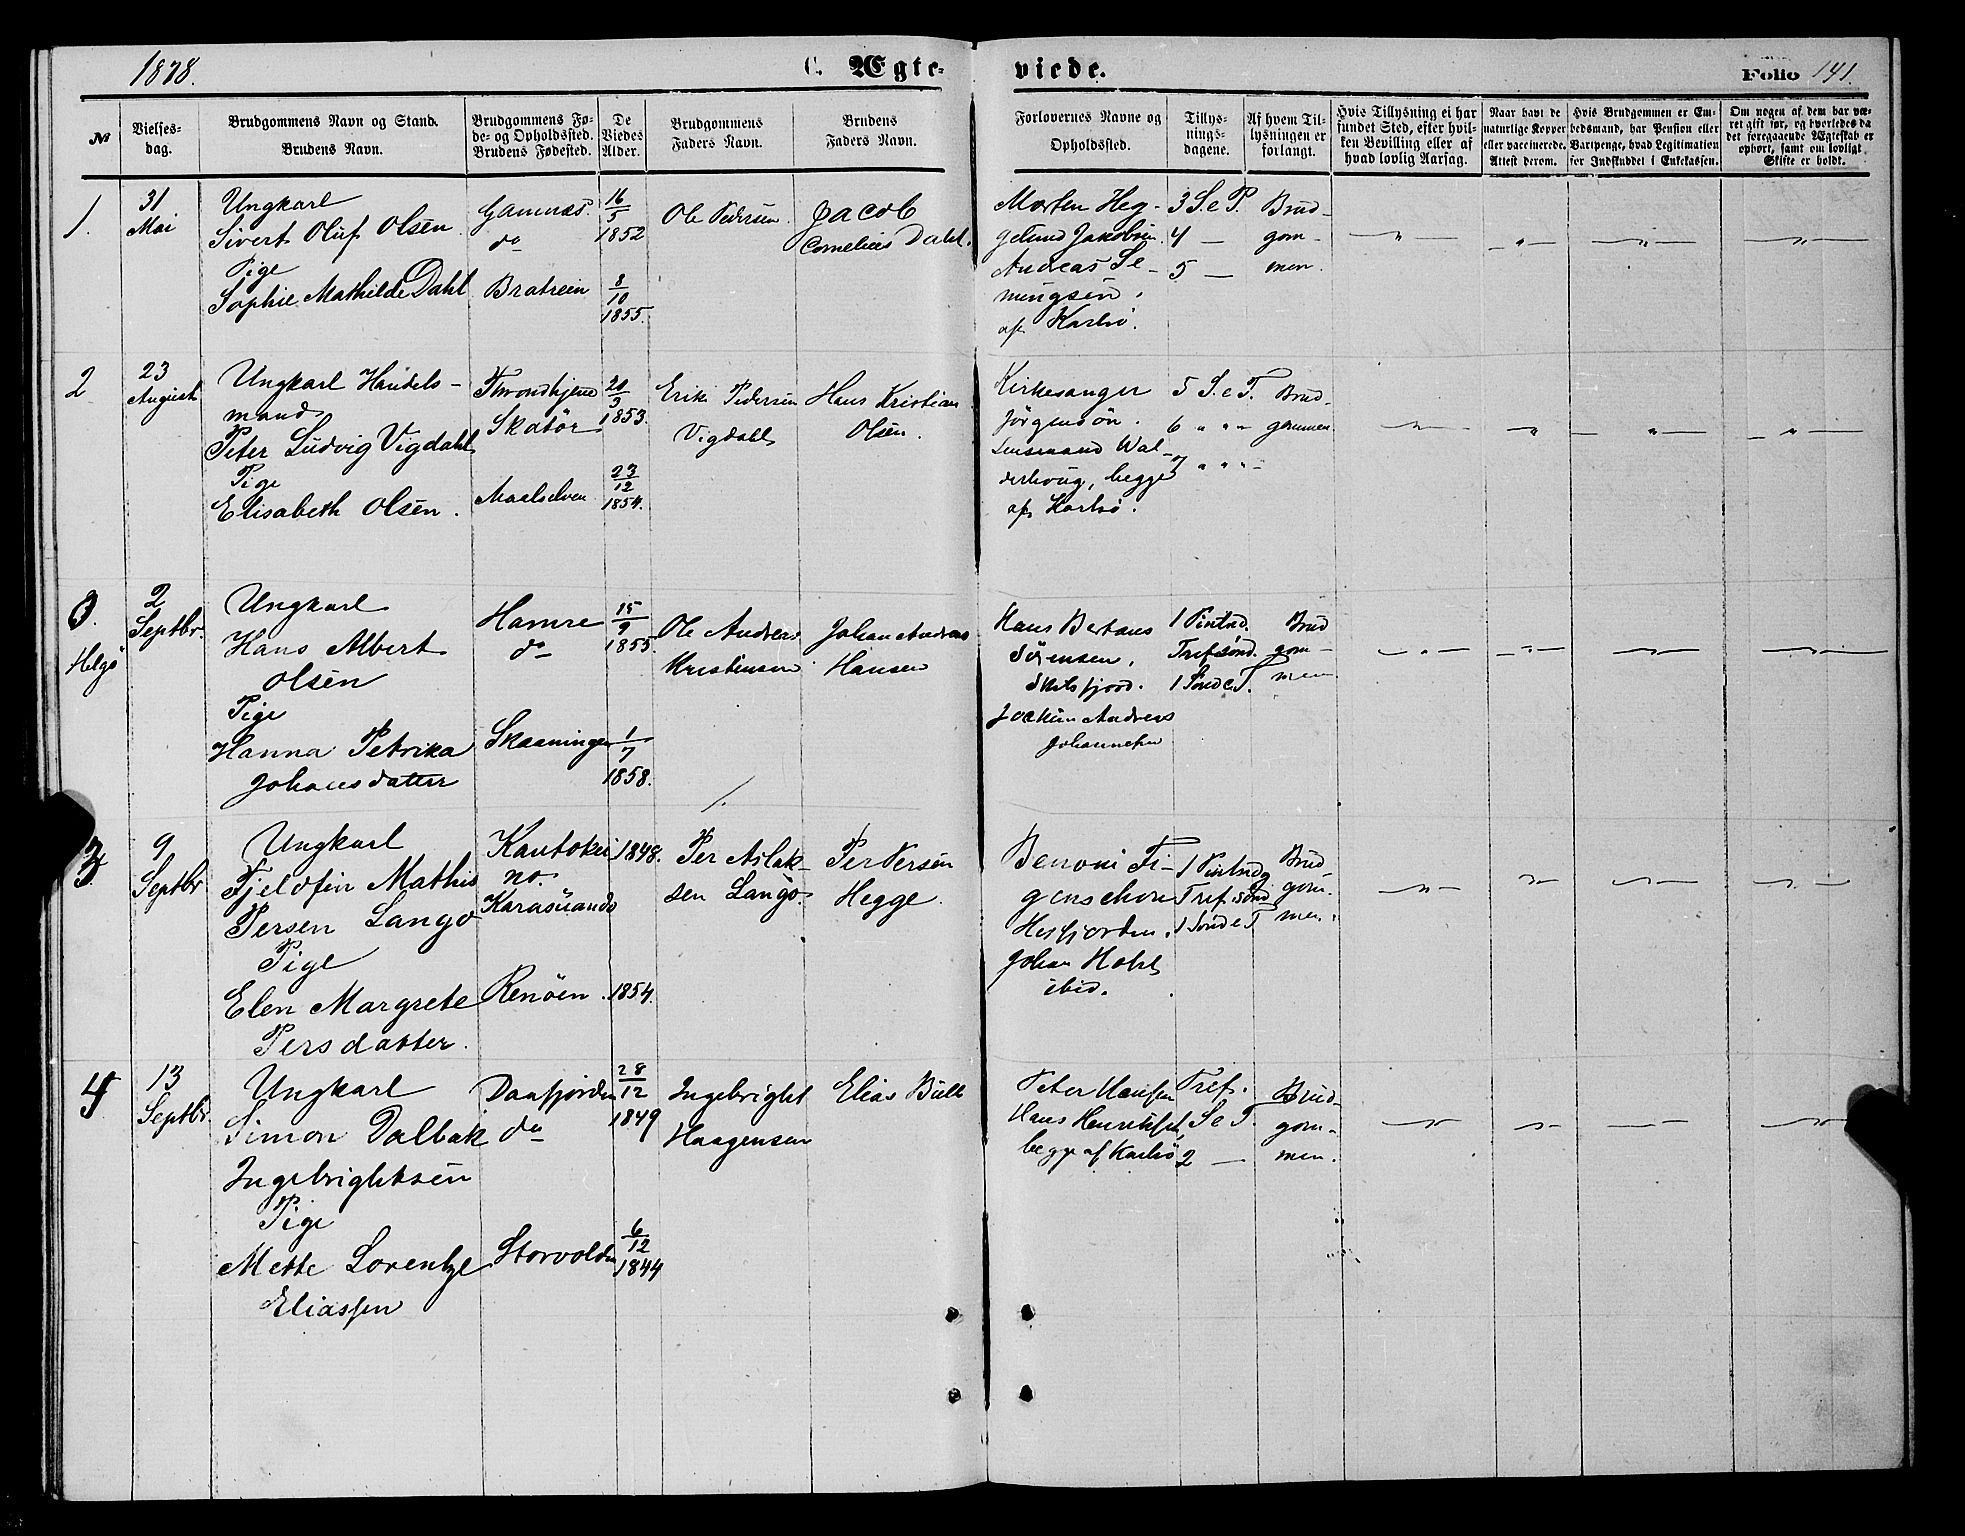 1878.
C. Ægteviede.
Folio 141.
№
Vielsesdag.
Brudgommens Navn og Stand.
Brudens Navn.
Brudgommens Føde- og Opholdssted.
Brudens Fødested.
De Viedes Alder.
Brudgommens Faders Navn.
Brudens Faders Navn.
Forlovernes Navne og Opholdssted.
Tillysningsdagene.
Af hvem Tillysningen er forlangt.
Hvis Tillysning ei har fundet Sted, efter hvilken Bevilling eller af hvad lovlig Aarsag.
Naar havt de naturlige Kopper eller vaccinerede. Attest derom.
Hvis Brudgommen er Embedsmand, har Pension eller Vartpenge, hvad Legitimation for Indskuddet i Enkekassen.
Om nogen af dem har været gift før, og hvorledes da det foregaaende Ægteskab er ophørt, samt om lovligt Skifte er holdt.
1.
31
Mai
Ungkarl
Sivert Oluf Olsen.
Pige
Sophie Mathilde Dahl
Gamnæs.
do
Bratrein
16/5
1852
8/10
1855.
Ole Pedersen.
Jacob
Cornelius Dahl.
Morten Heg-
gelund Jakobsen.
Andreas Se-
mingsen,
af Karlsø.
3 S. e P.
4 —
5 —
Brud-
gom-
men.
2
23
August
Ungkarl Handels-
mand
Peter Ludvig Vigdahl
Pige
Elisabeth Olsen.
Throndhjem
Skatör
Maalselven
20/9
1853.
23/12
1854.
Erik Pedersen
Vigdahl
Hans Kristian
Olsen.
Kirkesanger
Jörgensön.
Lensmand Wal-
derhoug, begge
af Karlsø.
5 S. e T.
6 " " "
7 " " "
Brud-
gommen.
0.
Helgö
2
Septbr.
Ungkarl
Hans Albert
Olsen
Pige
Hanna Petrika
Johansdatter
Hamre
do
Skaaningen
15/9
1855.
1/7
1858.
Ole Andreas
Kristensen
Johan Andreas
Hansen
Hans Bertaus
Sörensen,
Skulsfjord.
Jochim Andreas
Johannesen
1 Vintnd.
Tref sönd.
1 Sönd e T.
Brud
gom-
men
3
9
Septbr
Ungkarl
Fjeldfin Mathis
Persen Lango
Pige
Elen Margrete
Persdatter.
Kautokei
no.
Karasuando
Renöen.
1848.
1854.
Per Aslak-
sen Lango.
Per Persen
Hegge.
Benoni Fi-
genschou
Hesfjorden.
Johan Hohl
ibid.
1 Vintndg
Tref. sönd
1 Sönd e T
Brud-
gom-
men.
4
13
Septbr.
Ungkarl
Simon Dalbak
Ingebrightsen
Pige
Mette Lorentze
Eliassen
Daafjorden
do
Storvolden
28/12
1849
6/12
1844
Ingebright
Haagensen
Elias Bull
Peter Hansen
Hans Henriksen,
begge af Karlsø
Tref.
S e T.
2 —
Brud-
gom-
men.